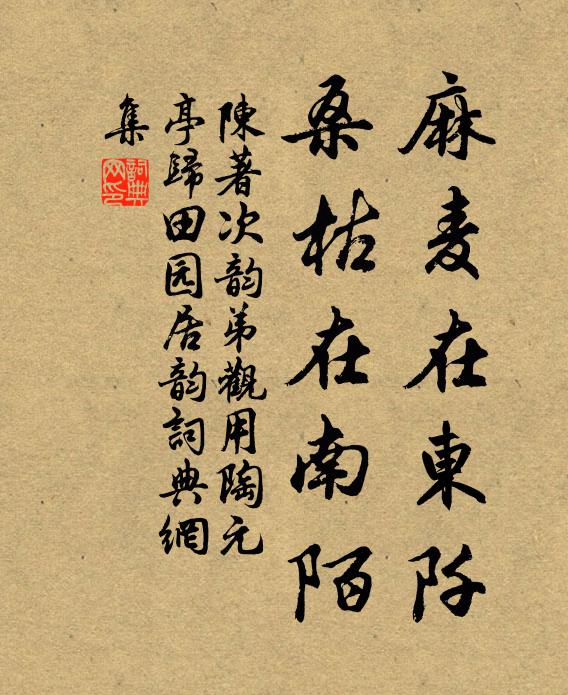 麻麦在東阡
桑枯在南陌
陳著次韵弟觀用陶元
亭歸田园居韵詞典網
集
詞典
网印